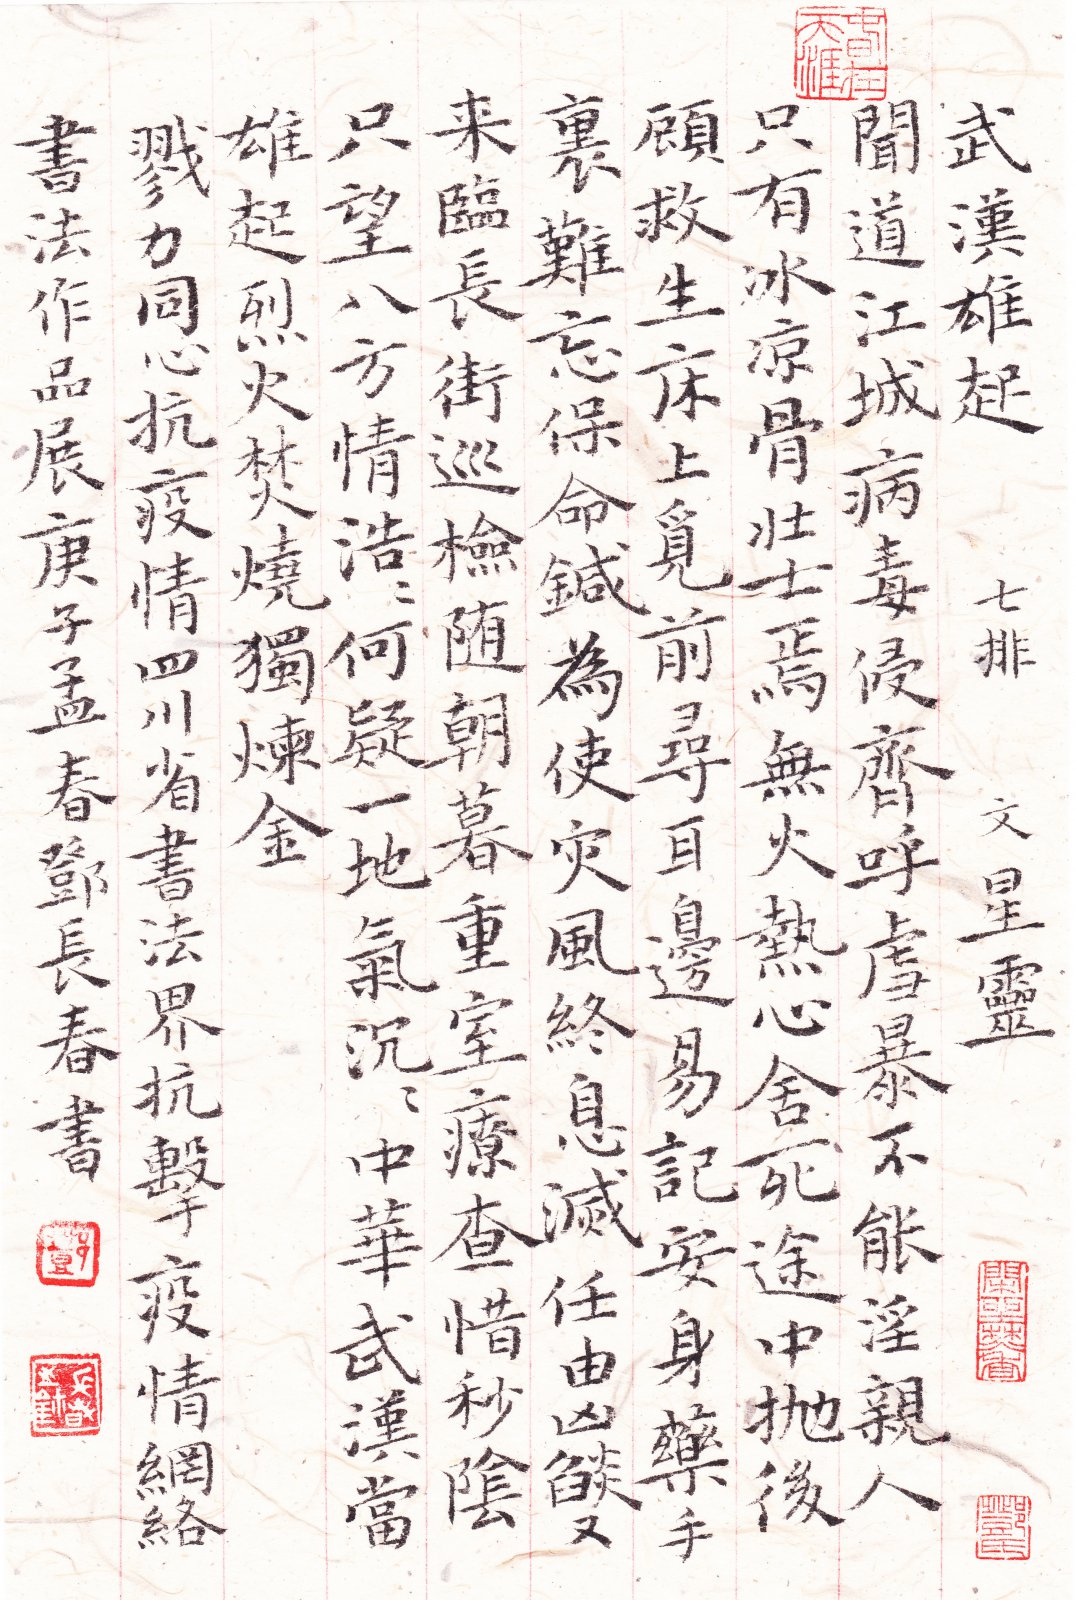 武漢雄起 七排 文星靈
聞道江城病毒侵齊呼虐暴不能淫親人
只有冰凉骨壮士焉無火熱心舍死途中抛後
顧救生床上覓前尋耳邊易記安身藥手
裏難忘保命鍼為使灾風終息滅任由凶燄又
来臨長街巡檢随朝暮重室療查惜秒陰
只望八方情浩〻何疑一地氣沉〻中華武漢當
雄起烈火焚燒獨煉金
戮力同心抗疫情四川省書法界抗擊疫情網絡
書法作品展庚子孟春鄧長春書